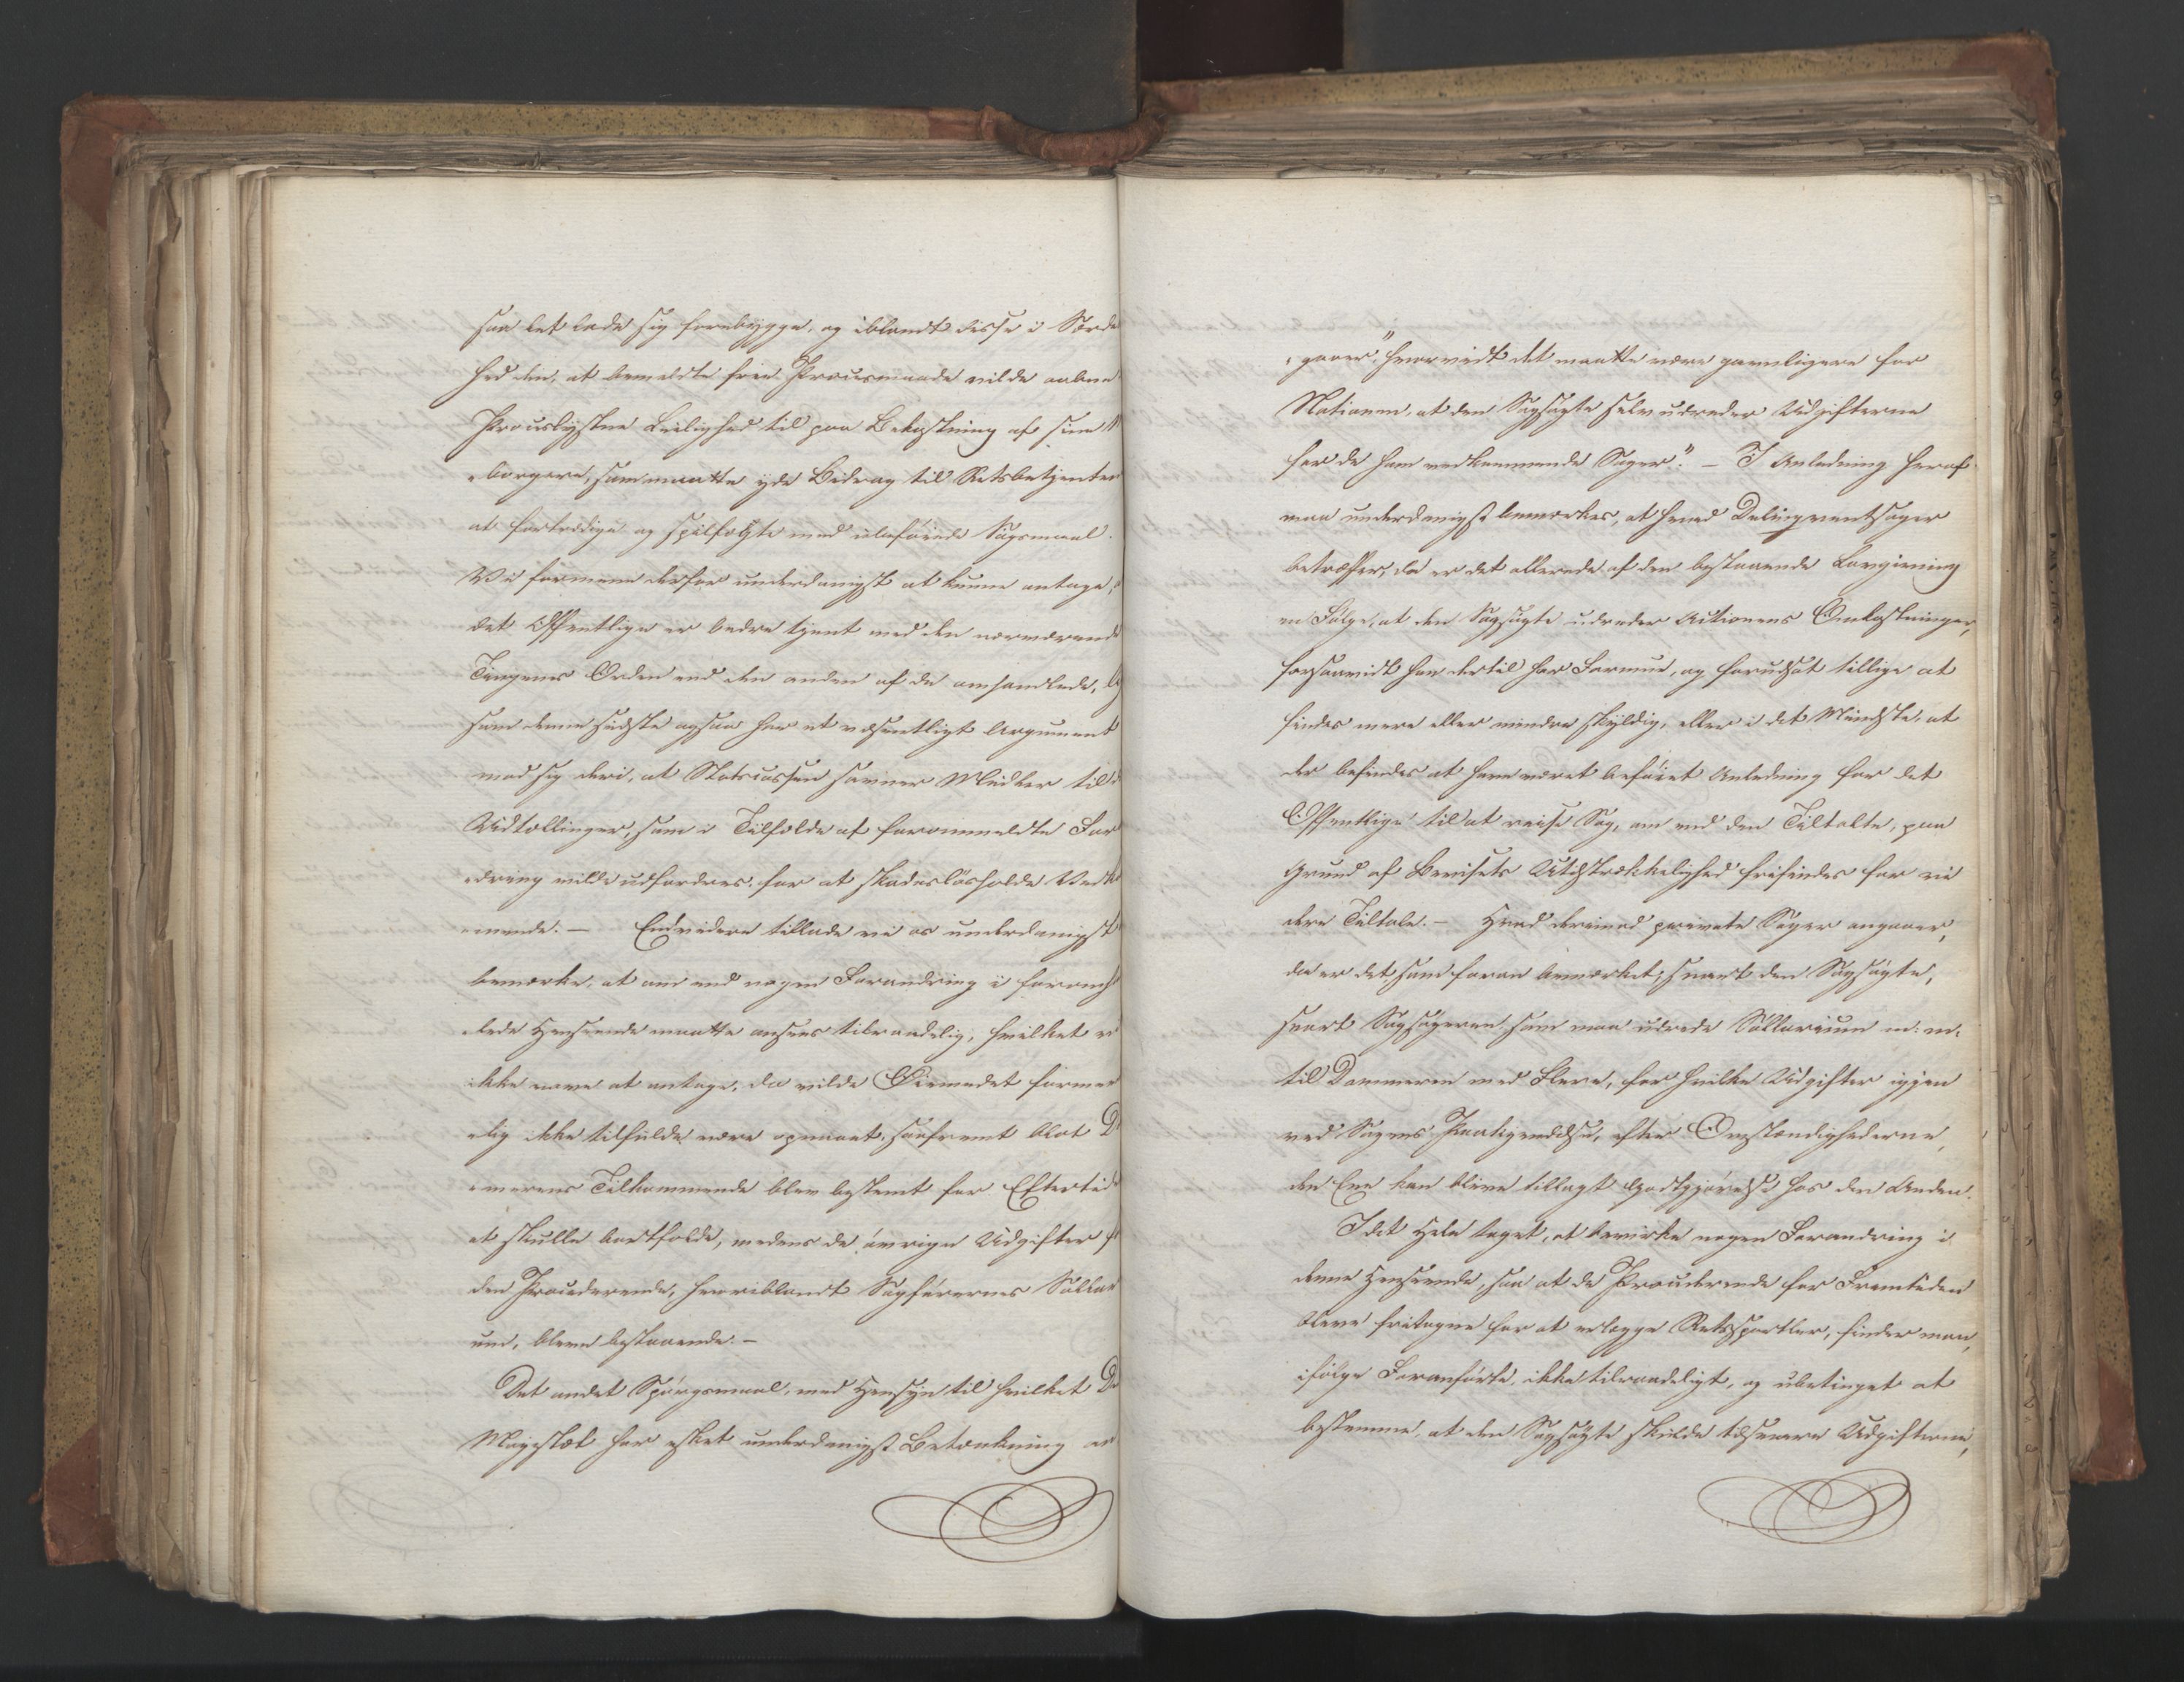 saa let lade sig forebygge, og iblandt disse i Særde
hed den, at bemeldte frie Procesmaade vilde aabne
Proceslystne Leilighed til paa Bekostning af sine M
borgere, som maatte yde Bidrag til Retsbetjenten
at fortrædige og spilfægte med ubeføiede Søgsmaal.
Vi formene derfor underdanigst at kunne antage,
det Offentlige er bedre tjent med den nærværende
Tingenes Orden end den anden af de omhandlede, li
som denne sidste ogsaa har et væsentligt Argument
mod sig deri, at Statscassen savner Midler til d
Udtællinger, som i Tilfælde af foranmeldte For
dring vilde udfordres for at skadesløsholde Vedk
mende. — Endvidere tillade vi os underdanigst
bemærke, at om end nogen Forandring i foromh
lede Henseende maatte ansees tilraadelig, hvilket vi
ikke vove at antage, da vilde Øiemedet formee
lig ikke tilfulde være opnaaet, saafremt blot D
merens Tilkommende blev bestemt for Eftertid
at skulle bortfalde, medens de øvrige Udgifter f
den Procederende, hvoriblandt Sagførernes Sallar
um, bleve bestaaende. —
Det andet Spørgsmaal, med Hensyn til hvilket D
Majestæt har æsket underdanigst Betænkning er
"gaaer," hvorvidt det maatte være gavnligere for
Nationen, at den Sagsøgte selv udreder Udgifterne
for de ham vedkommende Sager". — I Anledning heraf
maa underdanigst bemærkes, at hvad Delinqventsager
betræffer, da er det allerede af den bestaaende Lovgivning
en Følge, at den Sagsøgte udreder Actionens Omkostninger,
forsaavidt han dertil har Formue, og forudsat tillige at
findes mere eller mindre skyldig, eller i det Mindste, at
der befindes at have været beføiet Anledning for det
Offentlige til at reise Sag, om end den Tiltalte, paa
Grund af Bevisets Utilstrækkelighed frifindes for vi
dere Tiltale. — Hvad derimod private Sager angaaer,
da er det, som foran bemærket, snart den Sagsøgte,
snart Sagsøgeren som maa udrede Sallarium m: m:
til Dommeren med Flere, for hvilke Udgifter igjen
ved Sagens Paakjendelse, efter Omstændighederne,
den Ene kan blive tillagt Godtgjørelse hos den Anden.
I det Hele taget, at bevirke nogen Forandring i
denne Henseende, saa at de Procederende for Fremtiden
bleve fritagne for at erlægge Retssportler, finder man,
ifølge Foranførte, ikke tilraadeligt, og ubetinget at
bestemme, at den Sagsøgte skulde tilsvare Udgifterne,